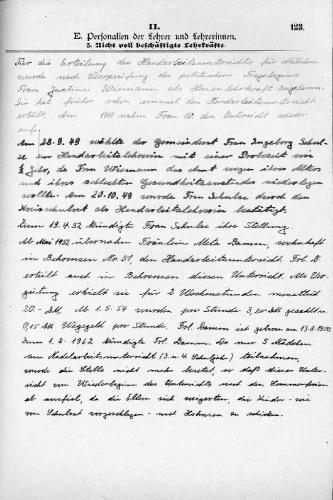 II.
123.
E. Personalien der Lehrer und Lehrerinnen.
5. Nicht voll beschäftigte Lehrkräfte.
Für die Erteilung des Handarbeitsunterrichts für Mädchen
wurde nach Überprüfung des politischen Fragebogens
Frau Justine Wiemann als Laienlehrkraft zugelassen.
Sie hat früher schon einmal den Handarbeitsunterricht
erteilt. Am nahm Frau W. den Unterricht wieder
auf.
Am 28.9.49 wählte der Gemeinderat Frau Ingeborg Schul-
ze zur Handarbeitslehrerin mit einer Probezeit von
½ Jahr, da Frau Wiemann das Amt wegen ihres Alters
und ihres schlechten Gesundheitszustandes niederlegen
wollte. Am 20.10.49 wurde Frau Schulze durch den
Kreisschulrat als Handarbeitslehrerin bestätigt.
Zum 19.4.52 kündigte Frau Schulze ihre Stellung.
Ab Mai 1952 übernahm Fräulein Meta Damm, wohnhaft
in Behrensen Nr. 31, den Handarbeitsunterricht. Frl. D.
erteilt auch in Behrensen diesen Unterricht. Als Ver-
gütung erhielt sie für 2 Wochenstunden monatlich
20.- DM. Ab 1.5.54 wurden pro Stunde gezahlt u.
0,15 DM Wegegeld pro Stunde. Frl. Damm ist geboren am
Zum 1.8.1962 kündigte Frl. Damm. Da nur 5 Mädchen
am Nadelarbeitsunterricht (3. u. 4. Schuljahr) teilnahmen,
wurde die Stelle nicht mehr besetzt, so daß dieser Unter-
richt von Wiederbeginn des Unterrichts nach den Sommerferien
ab ausfiel, da die Eltern sich weigerten, die Kinder - wie
vom Schulrat vorgeschlagen - nach zu schicken.